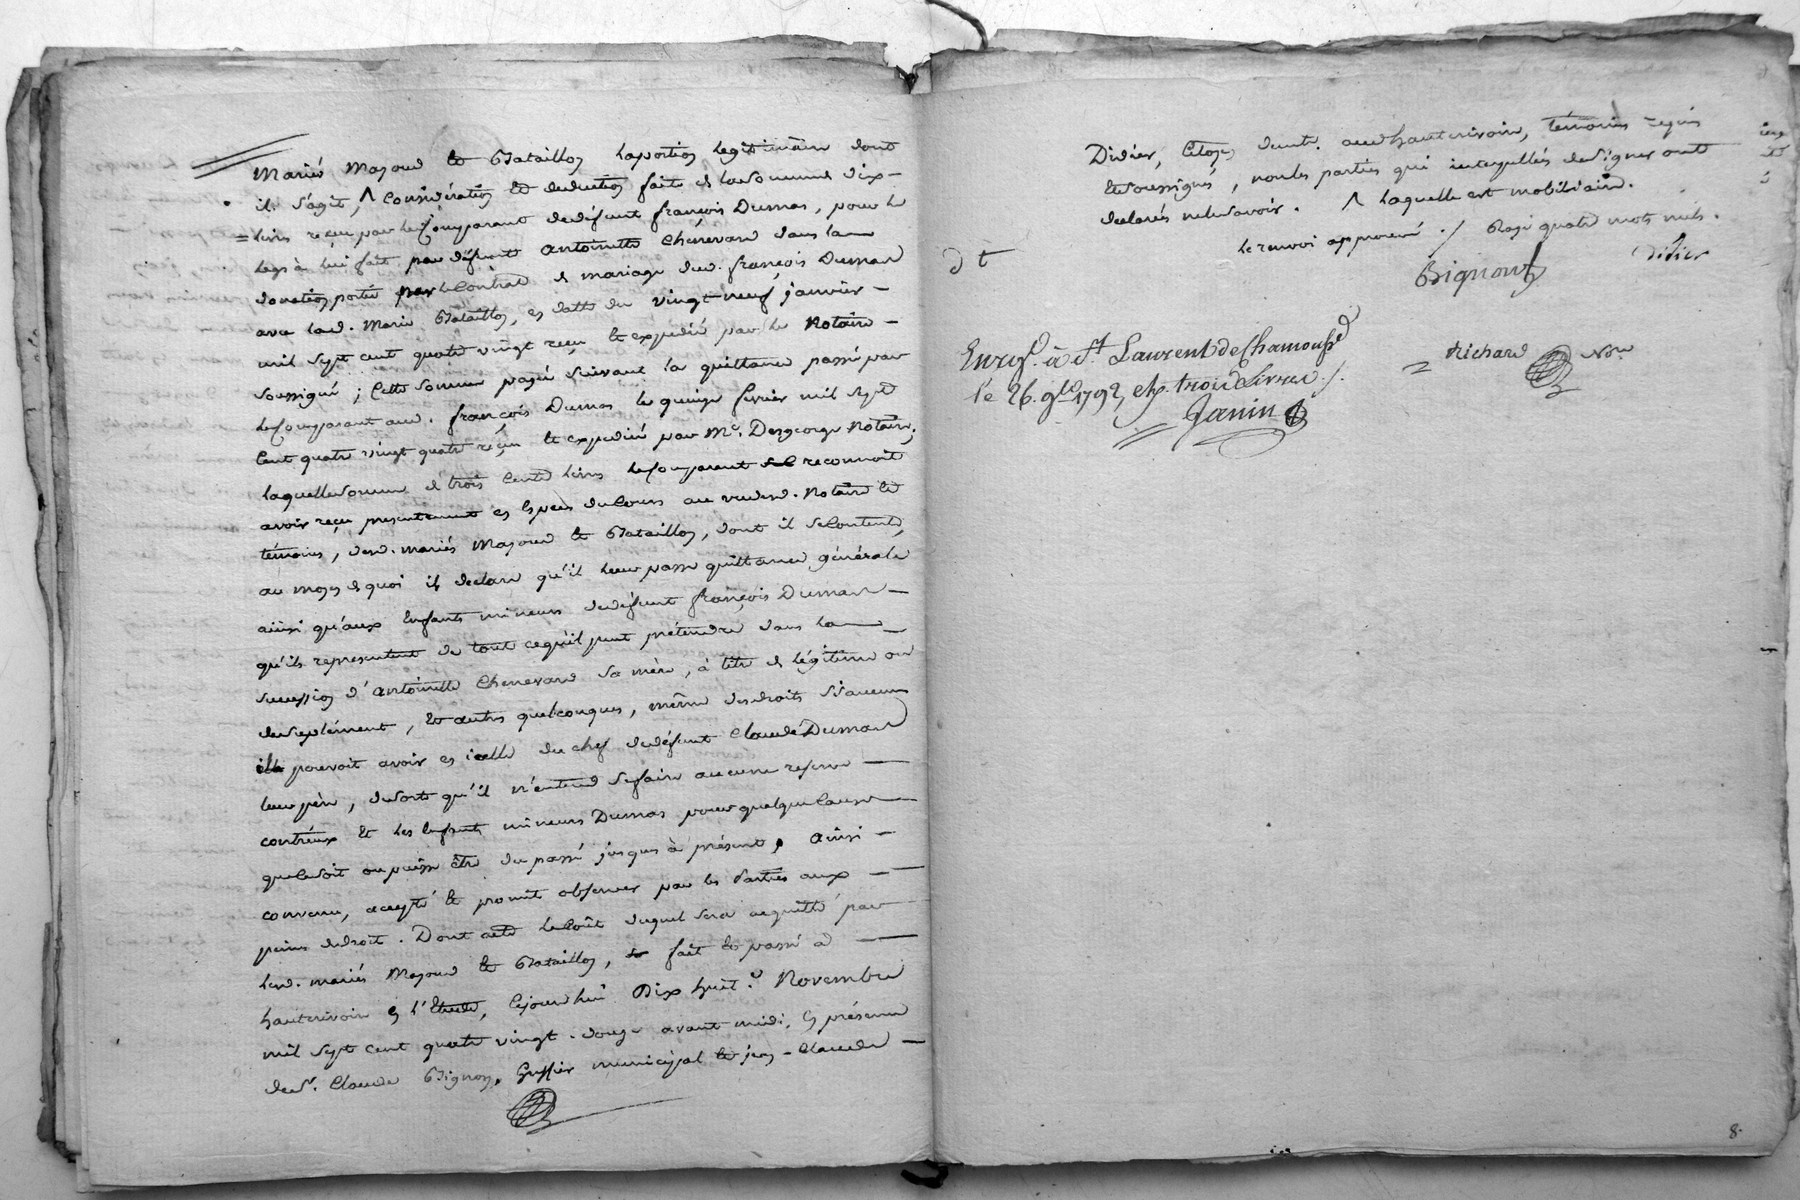 Mariés Mazoud et Bataillon, la portion légitimaire dont
il s'agit, ^ considération et deduction faite de la somme dix-
livres reçu par le Comparant de défunt françois Dumas, pour le
legs à lui fait par défunte antoinette Chenevard dans la
donation portée par le Contrat de mariage dud. françois Dumas
avec lad. Marie Bataillon, en datte du vingt neuf janvier
mil sept cent quatre vingt reçu et expedié par le Notaire
soussigné ; cette somme payée suivant la quittance passée par
le Comparant aud. françois Dumas le quinze fevrier mil sept
Cent quatre vingt quatre reçue et expediée par Me. Desgorge Notaire,
laquelle somme de trois cents livres le Comparant reconnoit
avoir reçu presentement en especes du Cours au vu dud. Notaire et
témoins, desd. mariés Mazoud et Bataillon, dont il se Contente,
au moyen de quoi il declare qu'il leur passe quittance générale
ainsi qu'aux Enfants mineurs de défunt françois Dumas
qu'ils representent de tout ce qu'il peut prétendre dans la
succession d'antoinette Chenevard sa mère, à titre de légitime ou
de suplément, et autres quelconques, même des droits si aucuns
il pouvoit avoir en icelle du chef de défunt Claude Dumas
leur père, de sorte qu'il n'entend se faire aucune reserve
contr'eux et les Enfants mineurs Dumas pour quelque Cause
que ce soit ou puisse être du passé jusques à présent, ainsi
convenu, accepté et promit observer par les Parties aux
peines de droit. Dont acte le Coût duquel sera acquitté par
lesd. mariés Mazoud et Bataillon, fait et passé à
hauterivoire en l'Etude, Cejourd'hui Dix huit Novembre
mil sept cent quatre vingt-douze avant midi, En présence
de sr. Claude Bignon, Greffier municipal et jean-Claude
Didier, Citoyen dud. hauterivoire, témoins requis
et soussignés, non les parties qui interpellées de signer ont
declaré ne le savoir. ^ laquelle est mobiliaire.
le renvoi approuvé ./ Rayé quatre mots nuls.
Bignon Didier
Enregé. à St. Laurent de Chamousset
le 26. 9bre 1792, Reçu trois Livres ./.
Janin
Richard Nore
8.